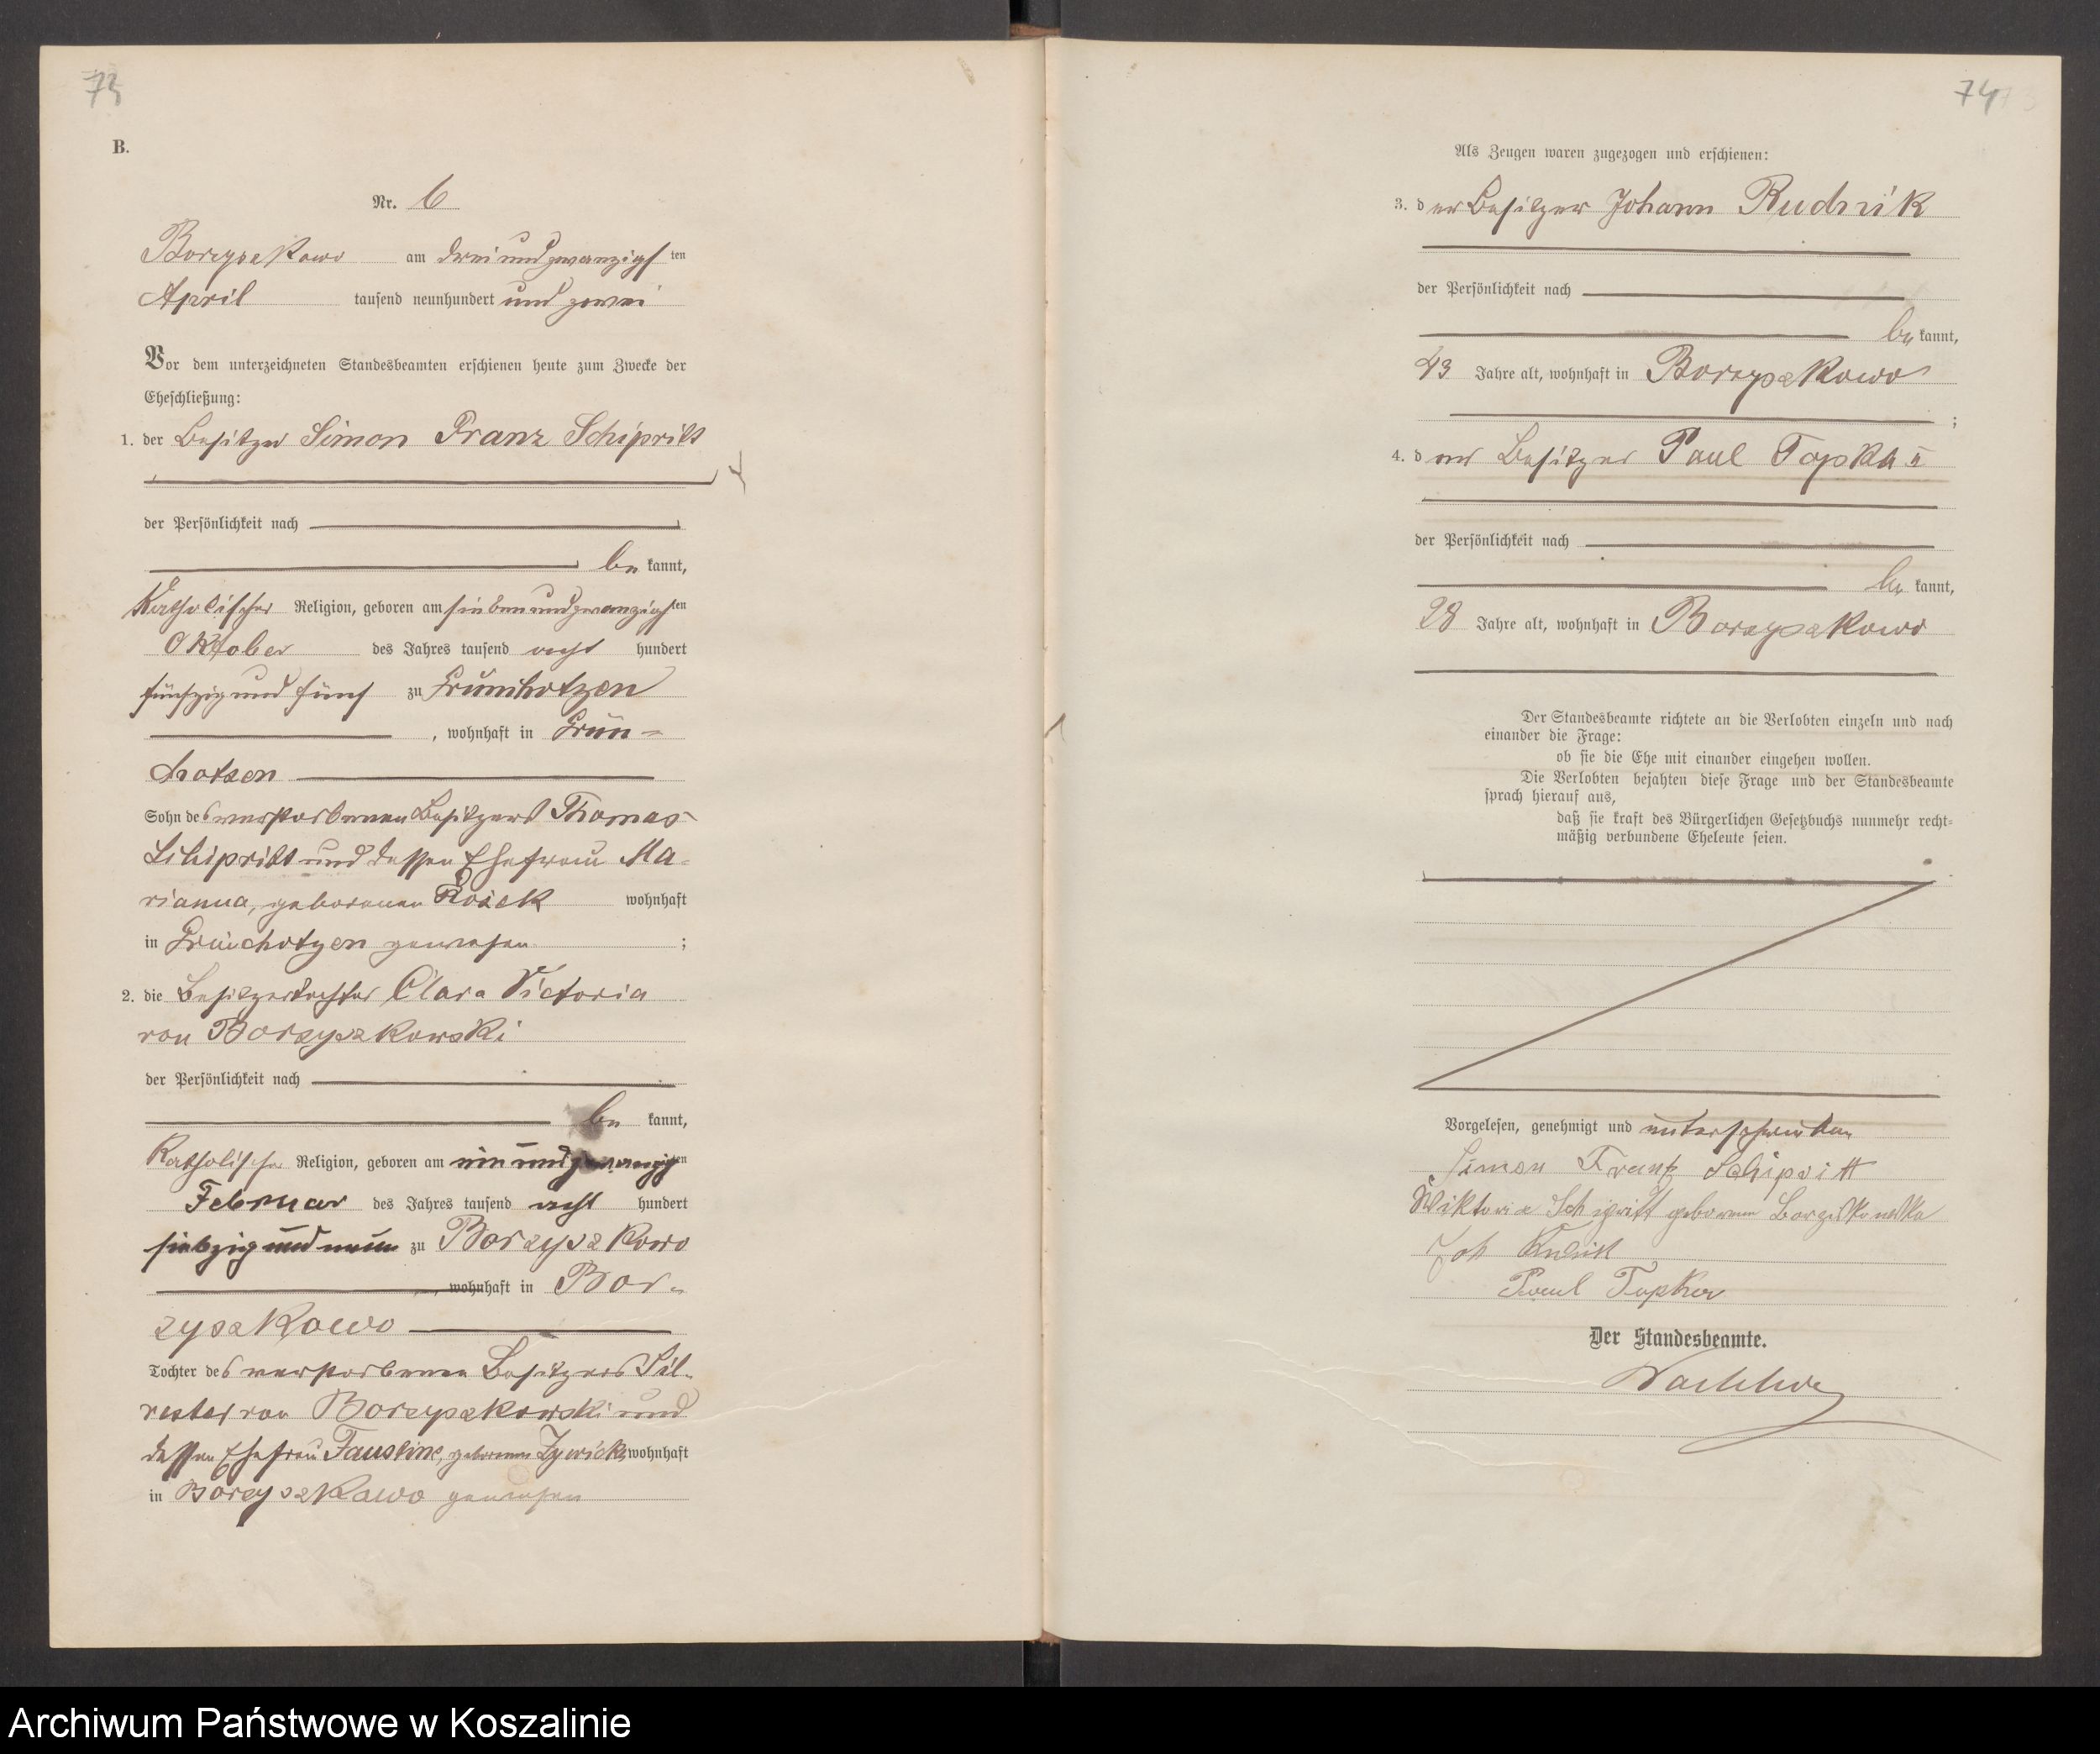 73
B.
Nr. 6
Borzyszkowo am dreiundzwanzigsten
April tausend neunhundert und zwei
Vor dem unterzeichneten Standesbeamten erschienen heute zum Zwecke der
Eheschließung:
1. der Besitzer Simon Franz Schipritt
der Persönlichkeit nach
be kannt,
Katholischer Religion, geboren am siebenundzwanzigsten
Oktober des Jahres tausend acht hundert
fünfzig und fünf zu Grünchotzen
, wohnhaft in Grün-
chotzen
Sohn des verstorbenen Besitzers Thomas
Schipritt und dessen Ehefrau Ma-
rianna, geborenen
wohnhaft
in Grünchotzen gewesen ;
2. die Besitzertochter Clara Victoria
von Borzyszkowski
der Persönlichkeit nach
be kannt,
Katholischer Religion, geboren am ein und zwanzigsten
Februar des Jahres tausend acht hundert
siebzig und neun zu Borzyszkowo
, wohnhaft in Bor-
zyszkowo
Tochter des verstorbenen Besitzers Sil-
vester von Borzyszkowski und
dessen Ehefrau Faustine, geborenen wohnhaft
in Borzyszkowo gewesen
74
Als Zeugen waren zugezogen und erschienen:
3. der Besitzer Johann Rudnik
der Persönlichkeit nach
be kannt,
43 Jahre alt, wohnhaft in Borzyszkowo
;
4. der Besitzer Paul Topka II
der Persönlichkeit nach
be kannt,
28 Jahre alt, wohnhaft in Borzyszkowo
Der Standesbeamte richtete an die Verlobten einzeln und nach
einander die Frage:
ob sie die Ehe mit einander eingehen wollen.
Die Verlobten bejahten diese Frage und der Standesbeamte
sprach hierauf aus,
daß sie kraft des Bürgerlichen Gesetzbuchs nunmehr recht-
mäßig verbundene Eheleute seien.
Vorgelesen, genehmigt und unterschrieben
Simon Frantz Schipritt
Wiktoria Schipritt geborenen
Joh
Paul Topka
Der Standesbeamte.
Archiwum Państwowe w Koszalinie